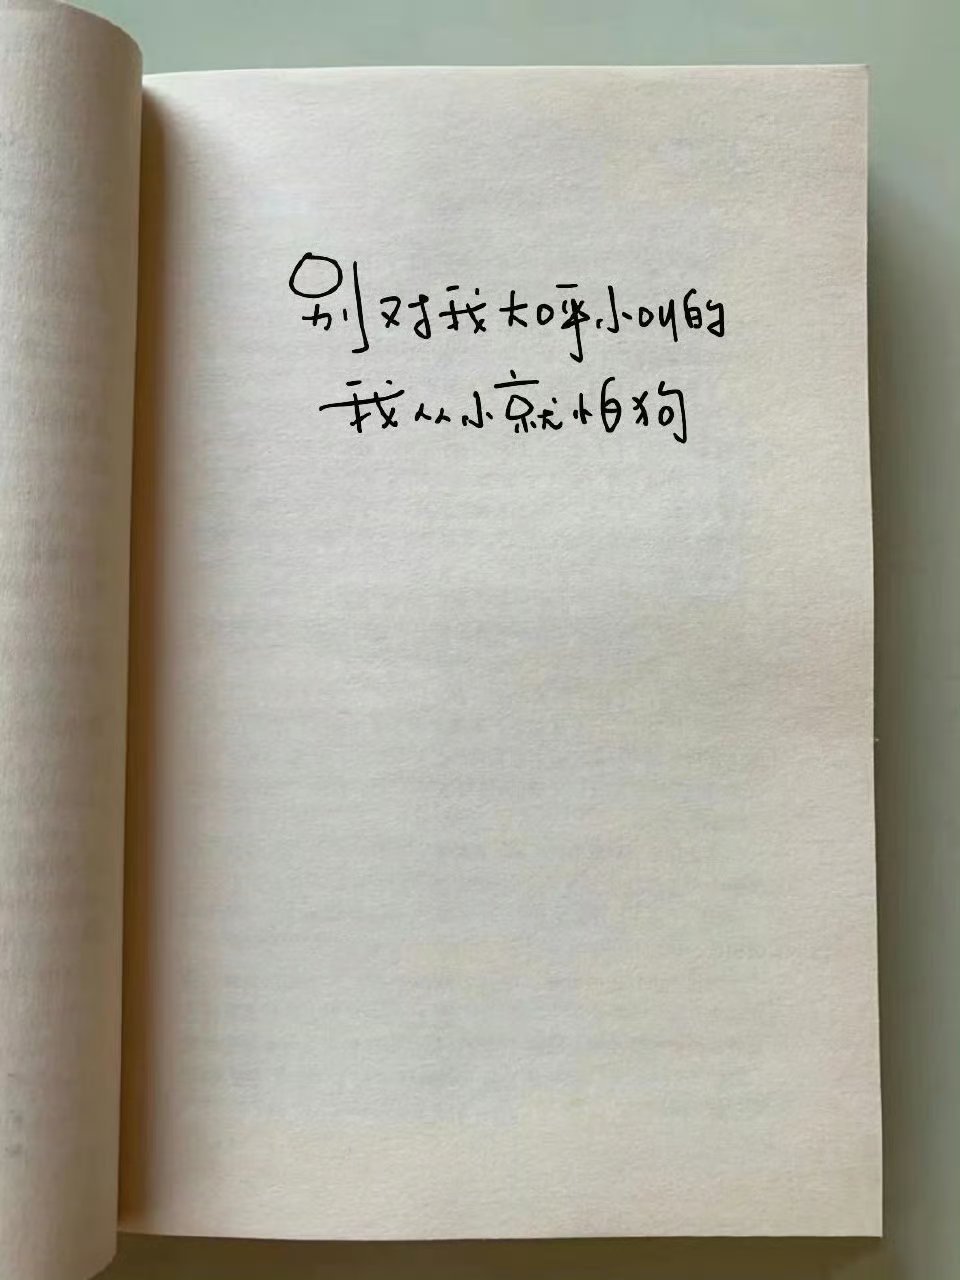 别对我大呼小叫的
我从小就怕狗